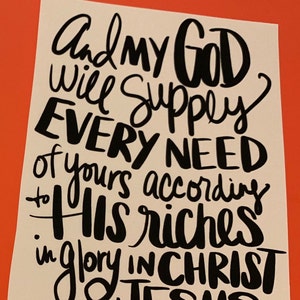 And MY GOD
will supply
EVERY NEED
of yours according
to HIS riches
in glory IN CHRIST
JESUS